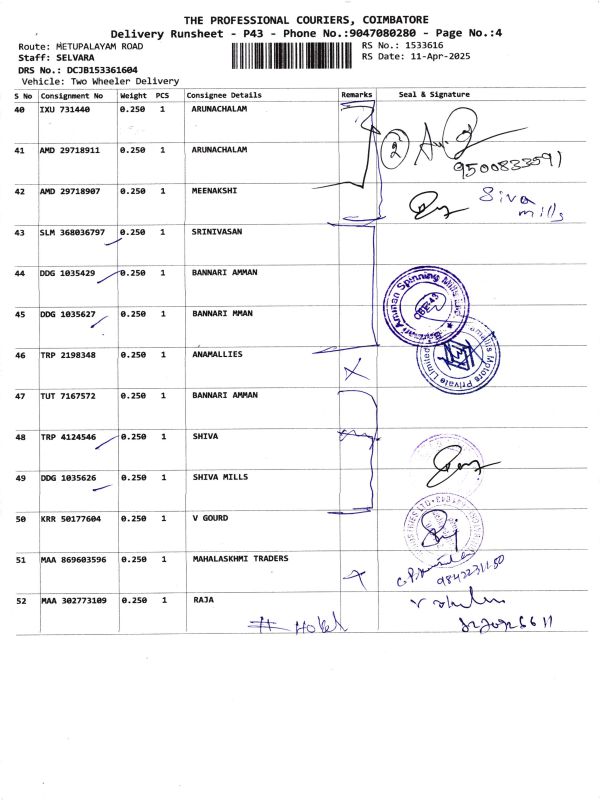 THE PROFESSIONAL COURIERS, COIMBATORE
Delivery Runsheet - P43 - Phone No.:9047080280 - Page No.:4
Route: METUPALAYAM ROAD RS No.: 1533616
Staff: SELVARA RS Date: 11-Apr-2025
DRS No.: DCJB153361604
Vehicle: Two Wheeler Delivery
S No Consignment No Weight PCS Consignee Details Remarks Seal & Signature
40 IXU 731440 0.250 1 ARUNACHALAM
2
41 AMD 29718911 0.250 1 ARUNACHALAM
9500833591
42 AMD 29718907 0.250 1 MEENAKSHI
Siva mills
43 SLM 368036797 0.250 1 SRINIVASAN
44 DDG 1035429 0.250 1 BANNARI AMMAN
45 DDG 1035627 0.250 1 BANNARI MMAN
46 TRP 2198348 0.250 1 ANAMALLIES
X
47 TUT 7167572 0.250 1 BANNARI AMMAN
48 TRP 4124546 0.250 1 SHIVA
49 DDG 1035626 0.250 1 SHIVA MILLS
50 KRR 50177604 0.250 1 V GOURD
51 MAA 869603596 0.250 1 MAHALASKHMI TRADERS
52 MAA 302773109 0.250 1 RAJA
# Hotel